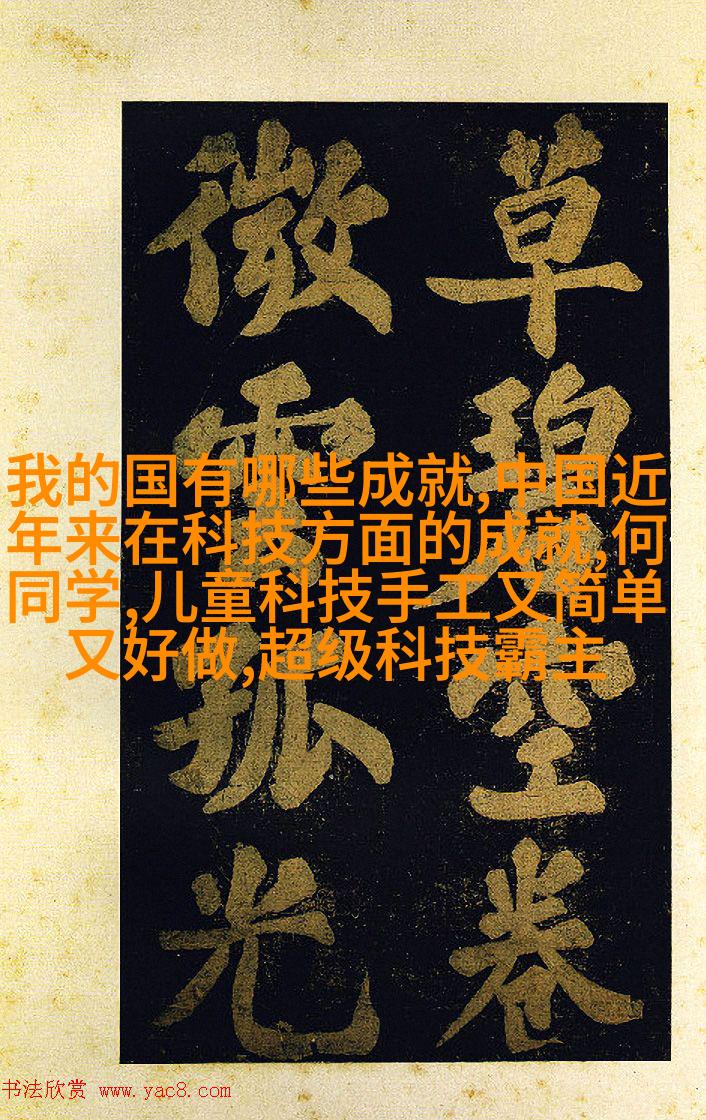 草碧空卷
微雲孤光
我的国有哪些成就,中国近
年来在科技方面的成就,何
同学,儿童科技手工又简单
又好做,超级科技霸主
书法欣赏 www.yac8.com